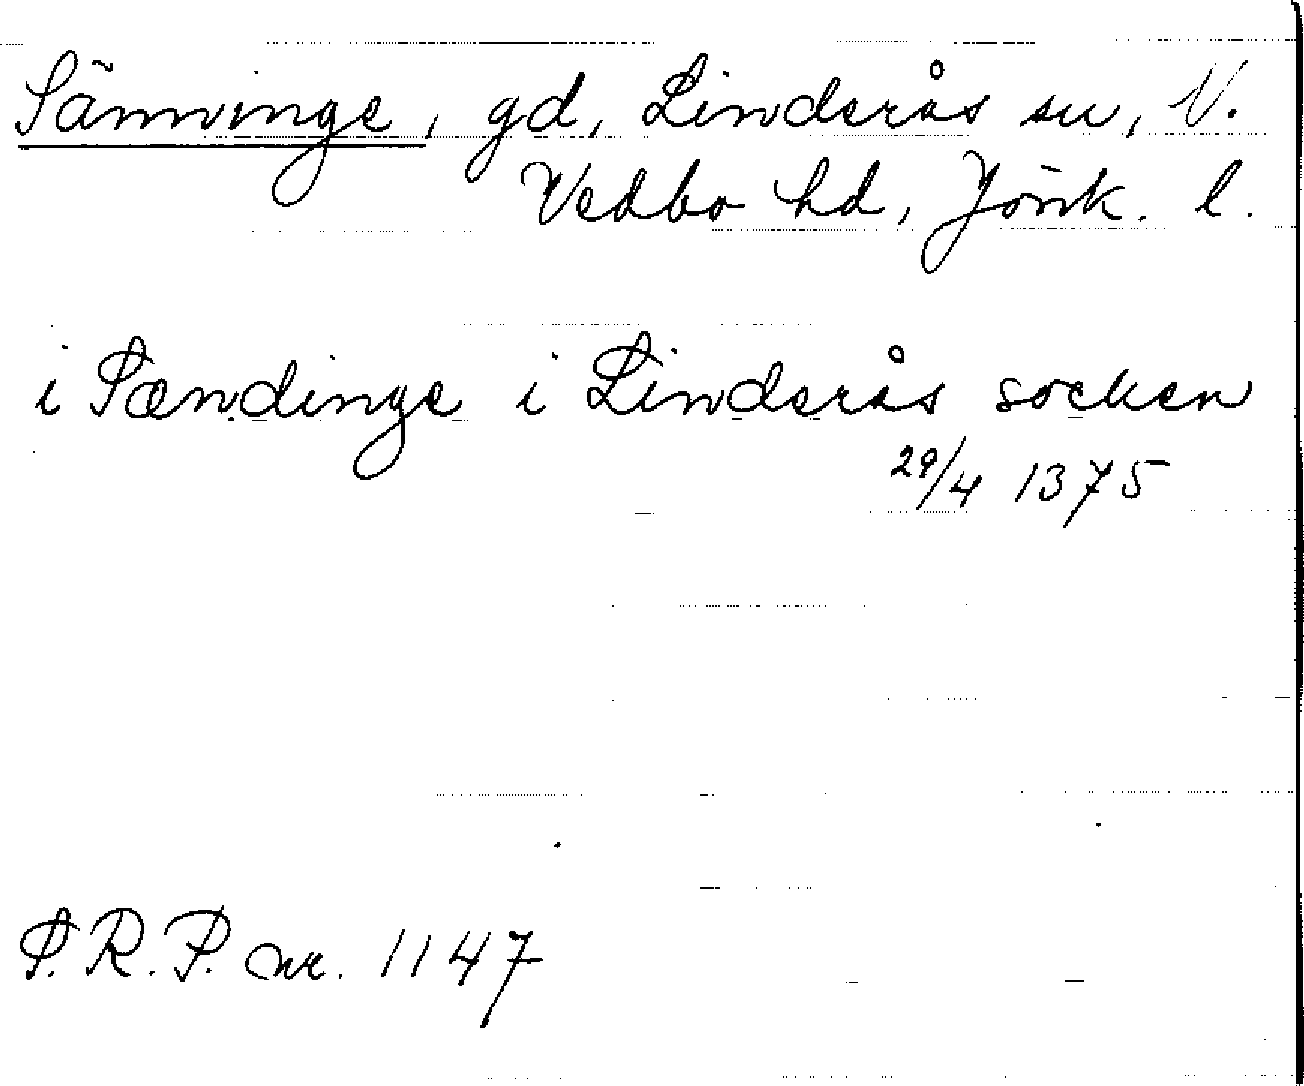 Sännvinge, gd, Linderås sn, N.
Vedbo hd, Jönk. l.
i Sændinge i Linderås socken
29/4 1375
S.R.P. nr. 1147